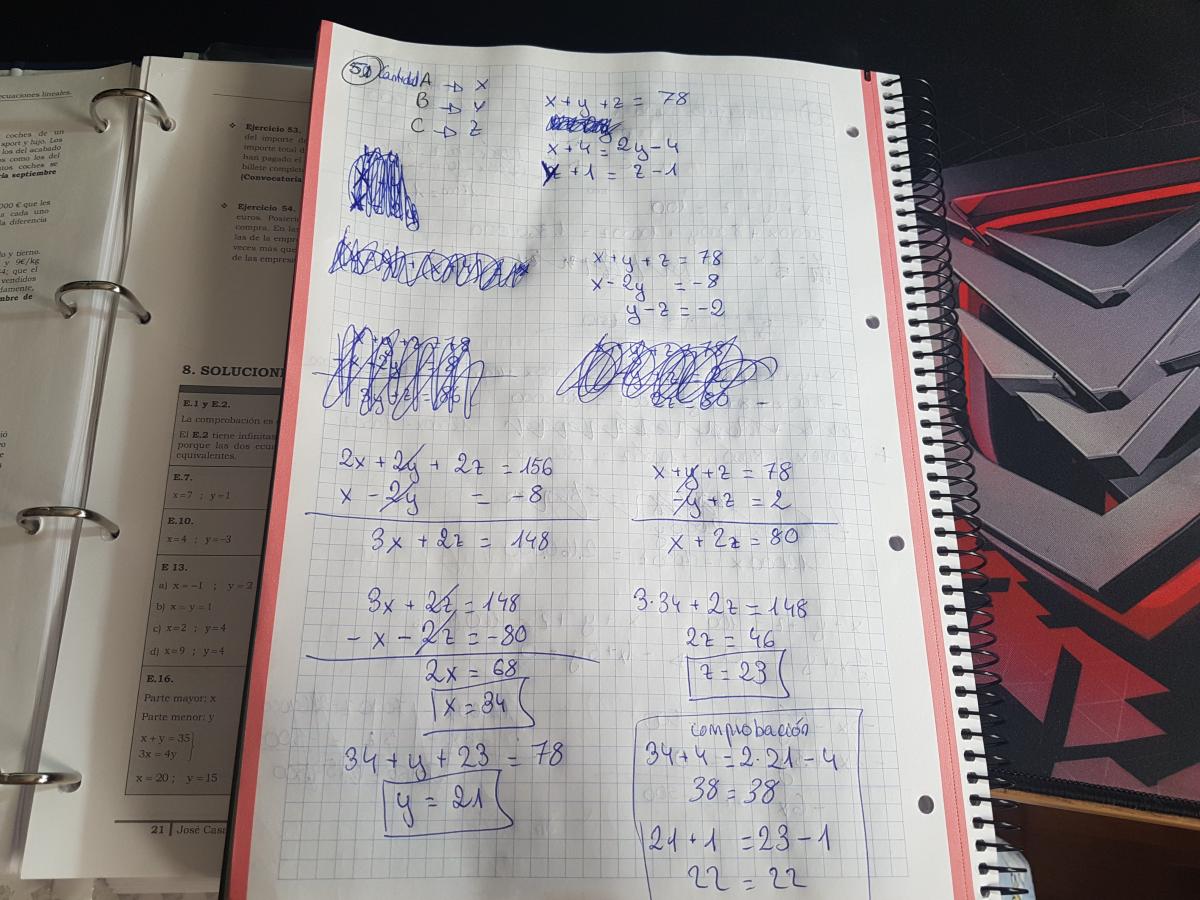 ecuaciones lineales.
coches de un
sport y lujo. Los
los del acabado
os como los del
ntos coches se
ría septiembre
000 € que les
a cada uno
la diferencia
lo y tierno.
y 9€/kg
4; que el
vendidos
damente,
mbre de
Ejercicio 53.
del importe de
importe total d
han pagado el
billete complet
(Convocatoria
Ejercicio 54.
euros. Posterio
compra. En las
las de la empre
veces más que
de las empresa
8. SOLUCION
E.1 y E.2.
La comprobación es
El E.2 tiene infinitas
porque las dos ecu
equivalentes.
E.7.
x=7 ; y=1
E.10.
x=4 ; y=−3
E 13.
a) x=−1 ; y=2
b) x=y=1
c) x=2 ; y=4
d) x=9 ; y=4
E.16.
Parte mayor: x
Parte menor: y
x+y=35
3x=4y
x=20 ; y=15
21 | José Casa
Cantidad A → x
B → y
C → z
x+y+z = 78
x+4 = 2y-4
y+1 = z-1
x+y+z = 78
x-2y = -8
y-z = -2
2x+2y+2z = 156
x-2y = -8
3x+2z = 148
x+y+z = 78
-y+z = 2
x+2z = 80
3x+2z = 148
-x-2z = -80
2x = 68
x = 34
34+y+23 = 78
y = 21
3·34+2z = 148
2z = 46
z = 23
comprobación
34+4 = 2·21-4
38 = 38
21+1 = 23-1
22 = 22